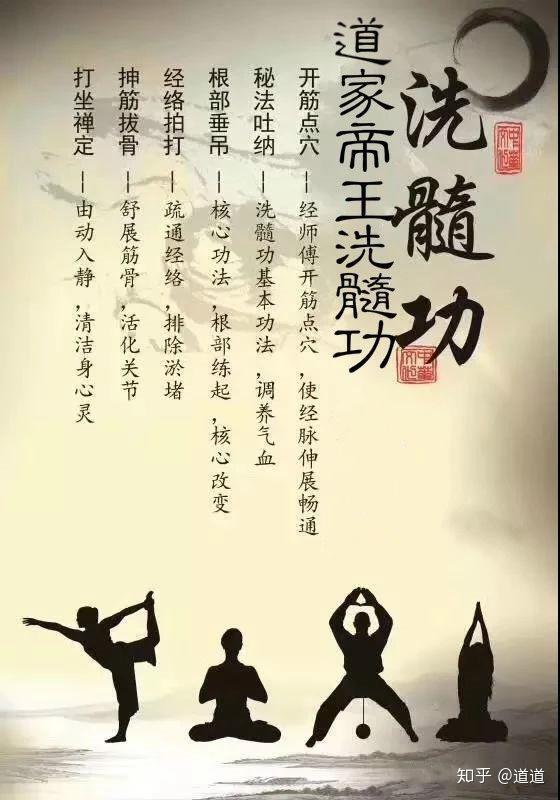 洗髓功
道家帝王洗髓功
开筋点穴—经师傅开筋点穴，使经脉伸展畅通
秘法吐纳—洗髓功基本功法，调养气血
根部垂吊—核心功法，根部练起，核心改变
经络拍打—疏通经络，排除淤堵
抻筋拔骨—舒展筋骨，活化关节
打坐禅定—由动入静，清洁身心灵
知乎 @道道